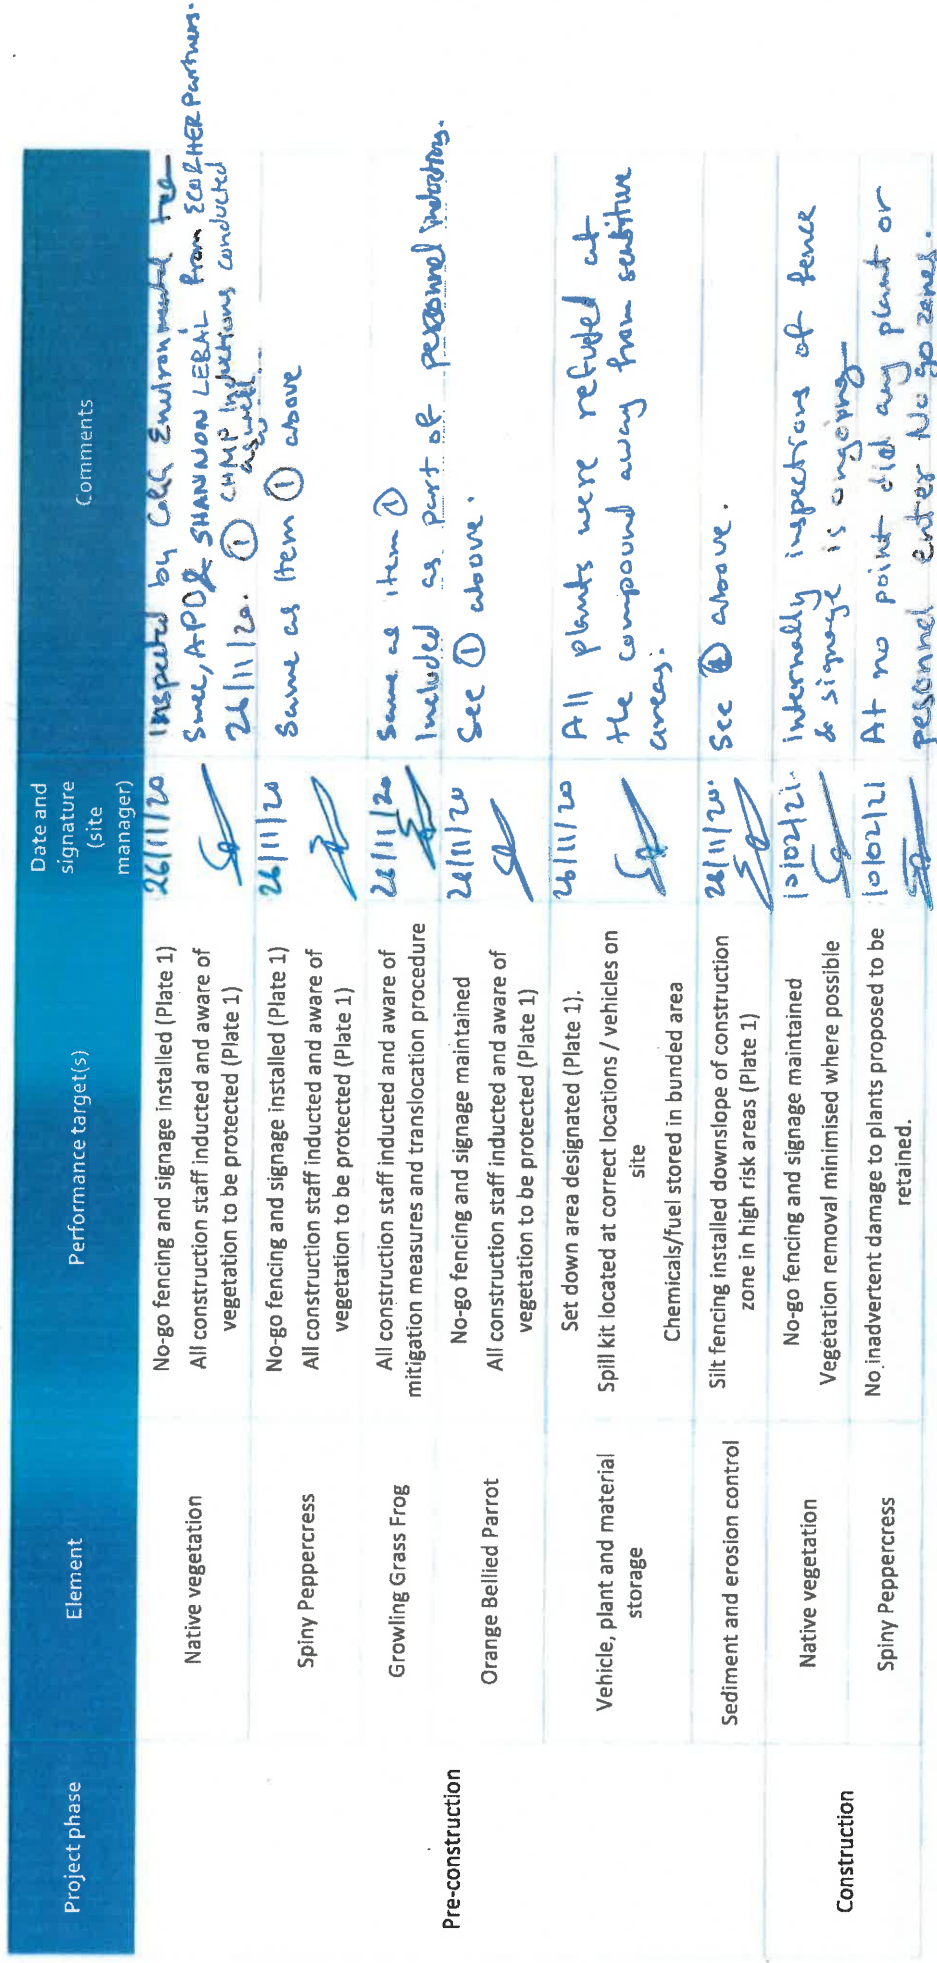 Project phase
Element
Performance target(s)
Date and
signature
(site
manager)
Comments
Pre-construction
Native vegetation
No-go fencing and signage installed (Plate 1)
All construction staff inducted and aware of
vegetation to be protected (Plate 1)
26/11/20
Inspected by CoGG Environmental tea
Smee, APO & SHANNON LEBAL from ECO & HER Partners.
26/11/20. ① CHMP Inductions conducted
as well.
Spiny Peppercress
No-go fencing and signage installed (Plate 1)
All construction staff inducted and aware of
vegetation to be protected (Plate 1)
26/11/20
Same as Item ① above
Growling Grass Frog
All construction staff inducted and aware of
mitigation measures and translocation procedure
26/11/20
Same as item ①
Included as part of personnel inductions.
Orange Bellied Parrot
No-go fencing and signage maintained
All construction staff inducted and aware of
vegetation to be protected (Plate 1)
26/11/20
See ① above.
Vehicle, plant and material
storage
Set down area designated (Plate 1).
Spill kit located at correct locations / vehicles on
site
Chemicals/fuel stored in bunded area
26/11/20
All plants were refueled at
the compound away from sensitive
areas.
Sediment and erosion control
Silt fencing installed downslope of construction
zone in high risk areas (Plate 1)
26/11/20.
See ① above.
Construction
Native vegetation
No-go fencing and signage maintained
Vegetation removal minimised where possible
10/02/21.
internally inspections of fence
& signage is ongoing
Spiny Peppercress
No inadvertent damage to plants proposed to be
retained.
10/02/21
At no point did any plant or
pesonnel enter No go zones.